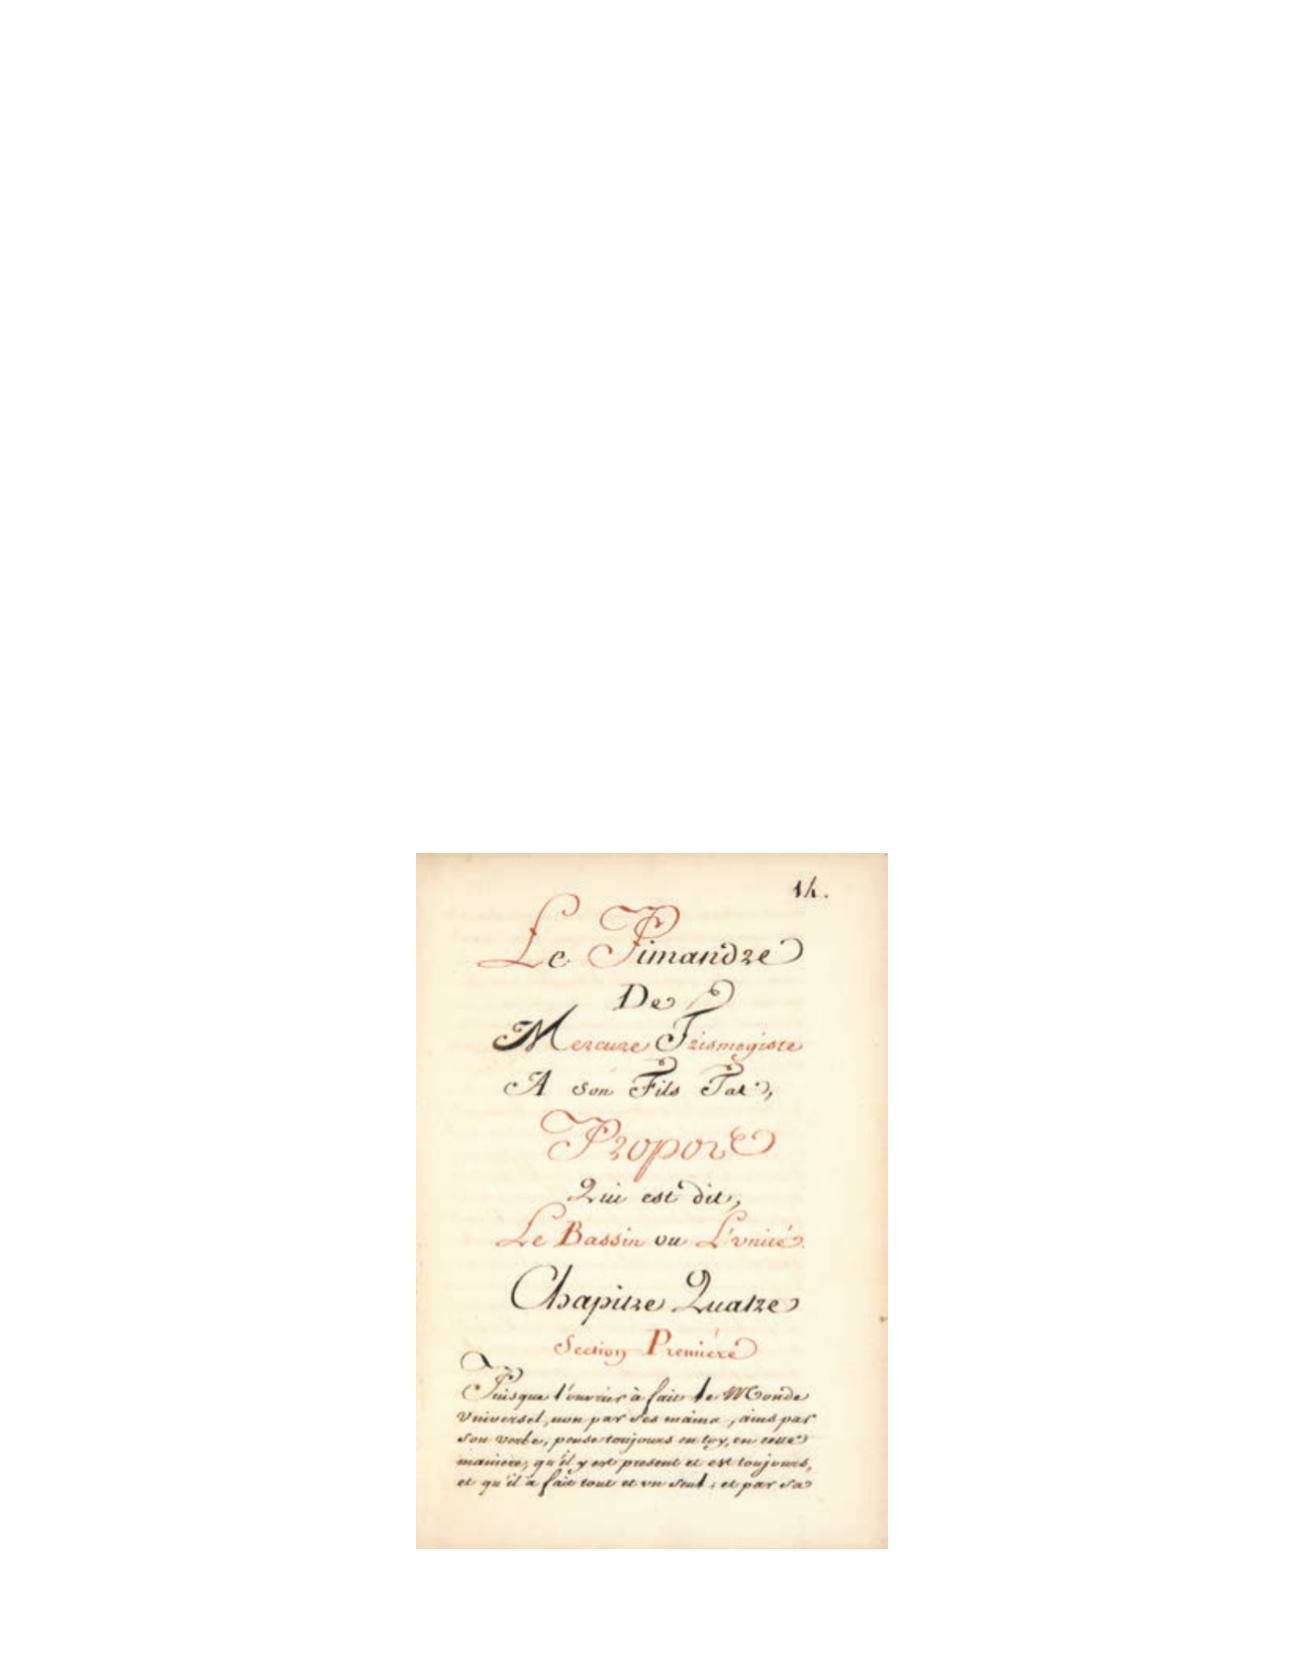 14.
Le Pimandre
De
Mercure Trismegiste
A son Fils Tat,
Propos
Qui est dit,
Le Bassin ou L'vnité.
Chapitre Quatre
Section Premiere
Puisque l'ouvrier à fait le Monde
Vniversel, non par ses mains, ains par
son verbe, pense toujours en toy, en cette
maniere, qu'il y est present et est toujours,
et qu'il a fait tout et vn seul; et par sa